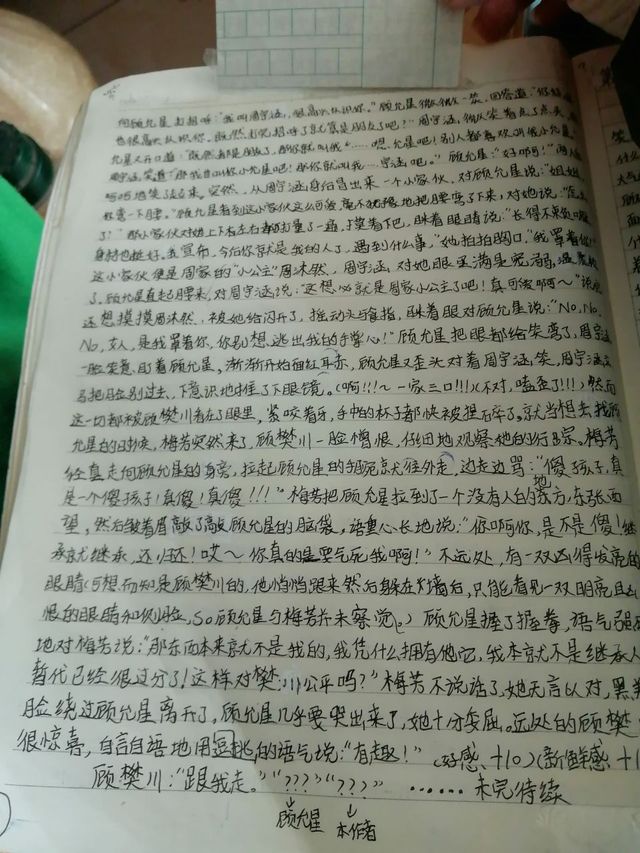 向顾允星打招呼:"我叫周宇涵,很高兴认识你。"顾允星微微一笑,回答道:"你好
也很高兴认识你。既然打完招呼了就算是朋友了吧!"周宇涵微笑着点了点头,
允星又开口道:"既然都是朋友了,那你就叫我"……嗯,允星吧!别人都喜欢叫我小允星
周宇涵笑道 那我自叫你小允星吧!那你就叫我…宇涵吧。" 顾允星:"好啊!"两人
呵呵地笑了起来。突然,从周宇涵身后冒出来一个小家伙,对顾允星说:"姐姐
弯一下腰。"顾允星看到这小家伙这么可爱,毫不犹豫地把腰弯了下来,对她说:
了!"那小家伙对她上下左右都打量了一遍,摸着下巴,眯着眼睛说:"长得不来
身材也挺好。我宣布,今后你就是我的人了,遇到什么事,"她拍拍胸口,"我罩着你!"
这小家伙便是周家的"小公主"周沐然,周宇涵对她眼里满是宠溺,温柔
了。顾允星直起腰来,对周宇涵说:"这想必就是周家小公主了吧!真可爱啊~"说
还想摸摸周沐然,被她给闪开了,摇动头与食指,眯着眼对顾允星说:"No,No,
No,女人,是我罩着你,你别想逃出我的手掌心!"顾允星把眼都给笑弯了,周宇涵
一脸笑意,盯着顾允星,渐渐开始面红耳赤,顾允星又歪头对着周宇涵笑,周宇涵
马把脸别过去,下意识地推了下眼镜。(啊!!!~一家三口!!!)(不对,嗑歪了!!!)然而
这一切都被顾樊川看在了眼里,紧咬着牙,手中的杯子都快被捏碎了。就当想去找顾
允星的时候,梅芳突然来了,顾樊川一脸憎恨,仔细地观察她的行踪。梅芳
径直走向顾允星的身旁,拉起顾允星的手腕就往外走,边走边骂:"傻孩子,真
是一个傻孩子!真傻!真傻!!!"梅芳把顾允星拉到了一个没有人的地方,东张西
望,然后皱着眉敲了敲顾允星的脑袋,语重心长地说:"你啊你,是不是傻!继
承就继承,还归还!哎~你真的是要气死我啊!"不远处,有一双凶得发亮的
眼睛(可想而知是顾樊川的,他悄悄跟来然后躲在墙后,只能看见一双明亮且凶
恨的眼睛和侧脸,so顾允星与梅芳并未察觉。)顾允星握了握拳,语气强
地对梅芳说:"那东西本来就不是我的,我凭什么拥有他它,我本就不是继承人
暂代已经很过分了!这样对樊川公平吗?"梅芳不说话了,她无言以对,黑着
脸绕过顾允星离开了,顾允星几乎要哭出来了,她十分委屈。远处的顾樊
很惊喜,自言自语地用逗挑的语气说:"有趣!"(好感+10)(新鲜感+1
顾樊川:"跟我走。""???""???" ……未完待续
顾允星 本作者